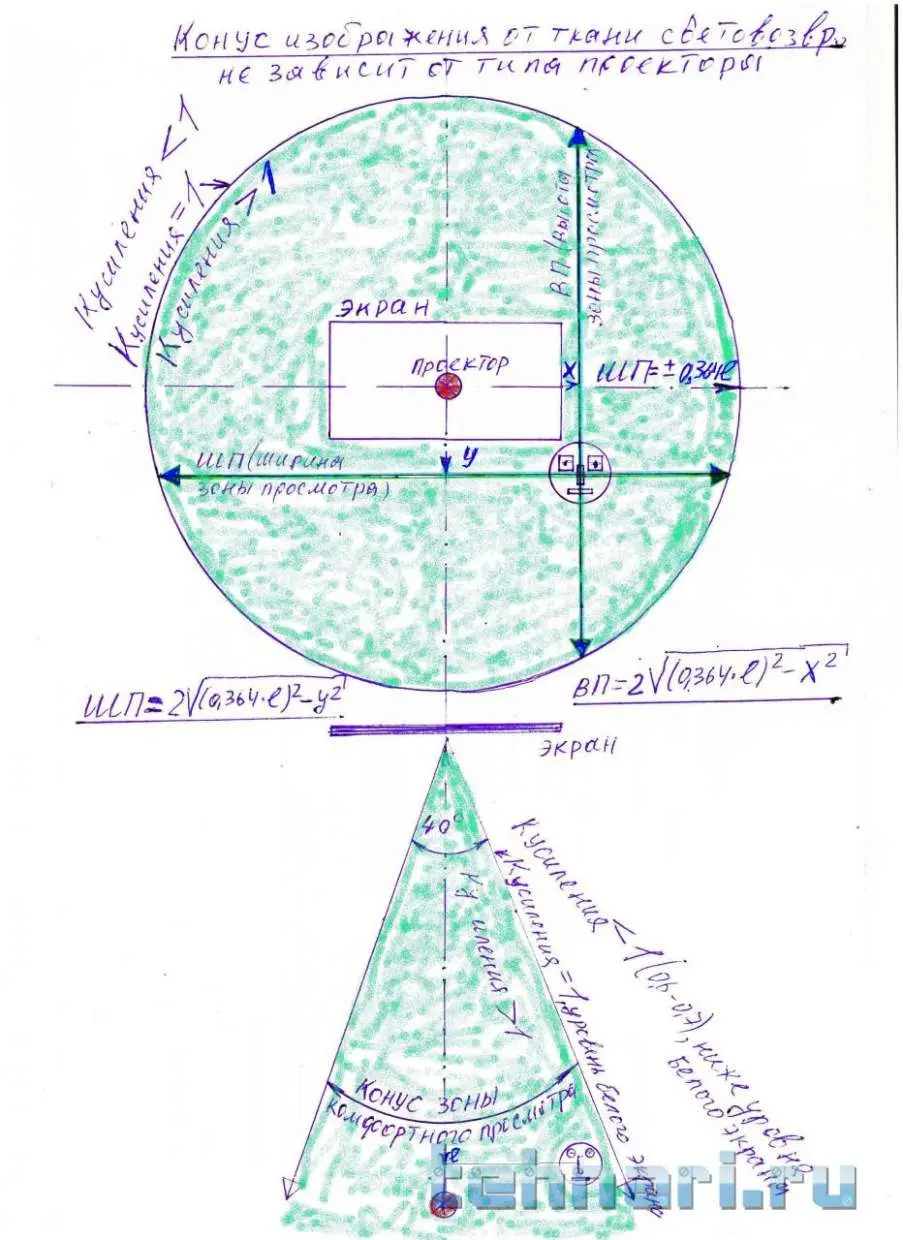 Конус изображения от ткани световозвр.
не зависит от типа проектора
Кусиления < 1
Кусиления = 1
Кусиления > 1
ВП (высота
зоны просмотра)
экран
проектор
X
ШП=±0,364ℓ
y
ШП (ширина
зоны просмотра)
ШП=2√(0,364·ℓ)²-y²
ВП=2√(0,364·ℓ)²-X²
экран
40°
Кусиления < 1 (0,6-0,7), ниже уровня
белого экрана
Кусиления = 1, уровень белого экрана
иления > 1
Конус зоны
комфортного просмотра
ℓ
tehnari.ru